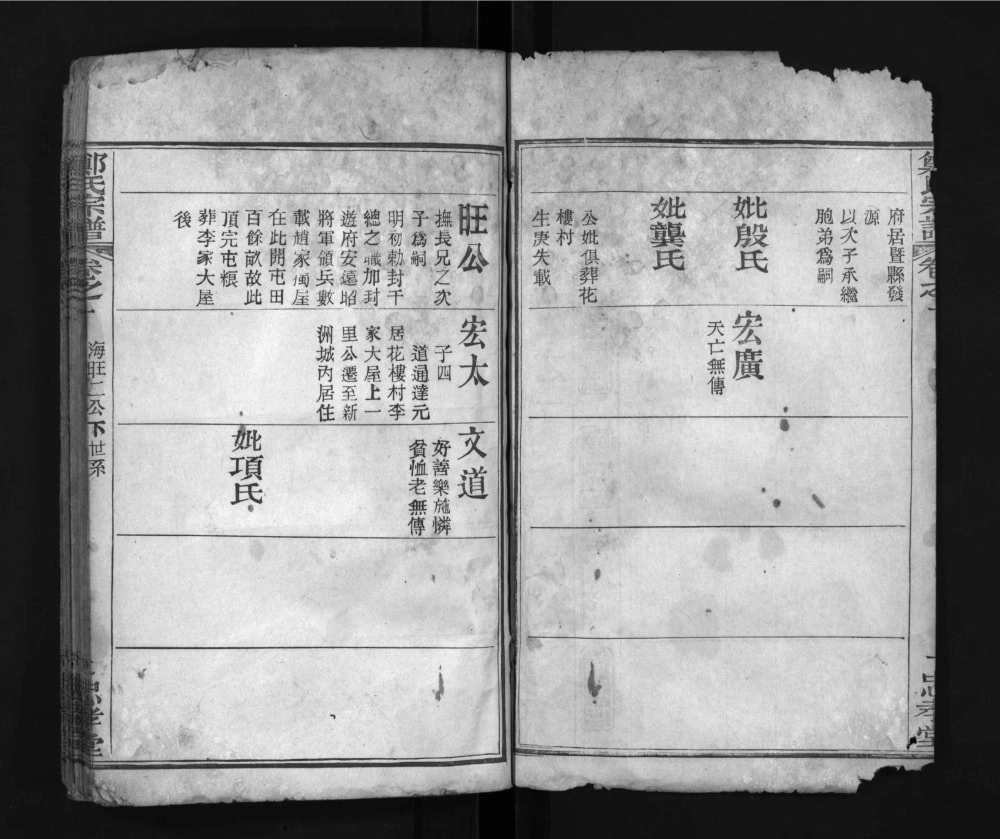 府居暨縣發
源
以次子承繼
胞弟為嗣
妣殷氏
妣龔氏
公妣俱葬花
樓村
生庚失載
宏廣
天亡無傳
旺公
撫長兄之次
子為嗣
明初勅封千
總之職加封
遊府安遠昭
將軍領兵數
載趙家獨屋
在此開屯田
百餘畝故此
頂完屯粮
葬李家大屋
後
宏太
子四
道通達元
居花樓村李
家大屋上一
里公遷至新
洲城內居住
文道
好善樂施憐
貧恤老無傳
妣項氏
鄭氏宗譜
卷之一
海旺二公下世系
忠孝堂